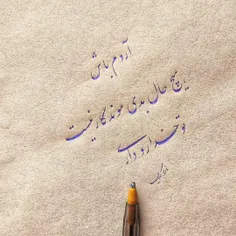 آروم باش
هیچ حال بدی موندگار نیست
تو خدا رو داری